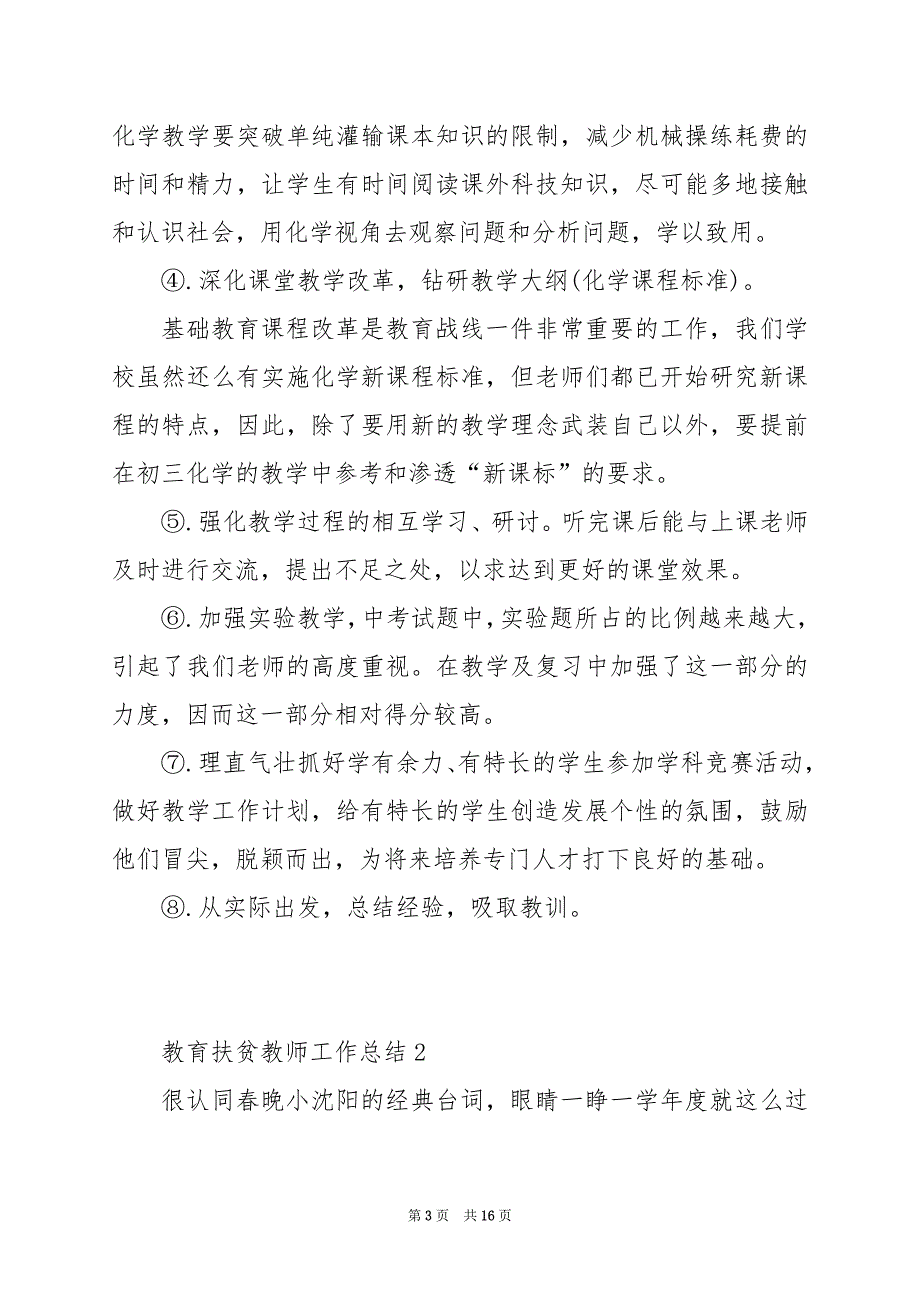 化学教学要突破单纯灌输课本知识的限制，减少机械操练耗费的
时间和精力，让学生有时间阅读课外科技知识，尽可能多地接触
和认识社会，用化学视角去观察问题和分析问题，学以致用。
④.深化课堂教学改革，钻研教学大纲(化学课程标准)。
基础教育课程改革是教育战线一件非常重要的工作，我们学
校虽然还么有实施化学新课程标准，但老师们都已开始研究新课
程的特点，因此，除了要用新的教学理念武装自己以外，要提前
在初三化学的教学中参考和渗透“新课标”的要求。
⑤.强化教学过程的相互学习、研讨。听完课后能与上课老师
及时进行交流，提出不足之处，以求达到更好的课堂效果。
⑥.加强实验教学，中考试题中，实验题所占的比例越来越大，
引起了我们老师的高度重视。在教学及复习中加强了这一部分的
力度，因而这一部分相对得分较高。
⑦.理直气壮抓好学有余力、有特长的学生参加学科竞赛活动，
做好教学工作计划，给有特长的学生创造发展个性的氛围，鼓励
他们冒尖，脱颖而出，为将来培养专门人才打下良好的基础。
⑧.从实际出发，总结经验，吸取教训。
教育扶贫教师工作总结2
很认同春晚小沈阳的经典台词，眼睛一睁一学年度就这么过
第 3 页 共 16 页